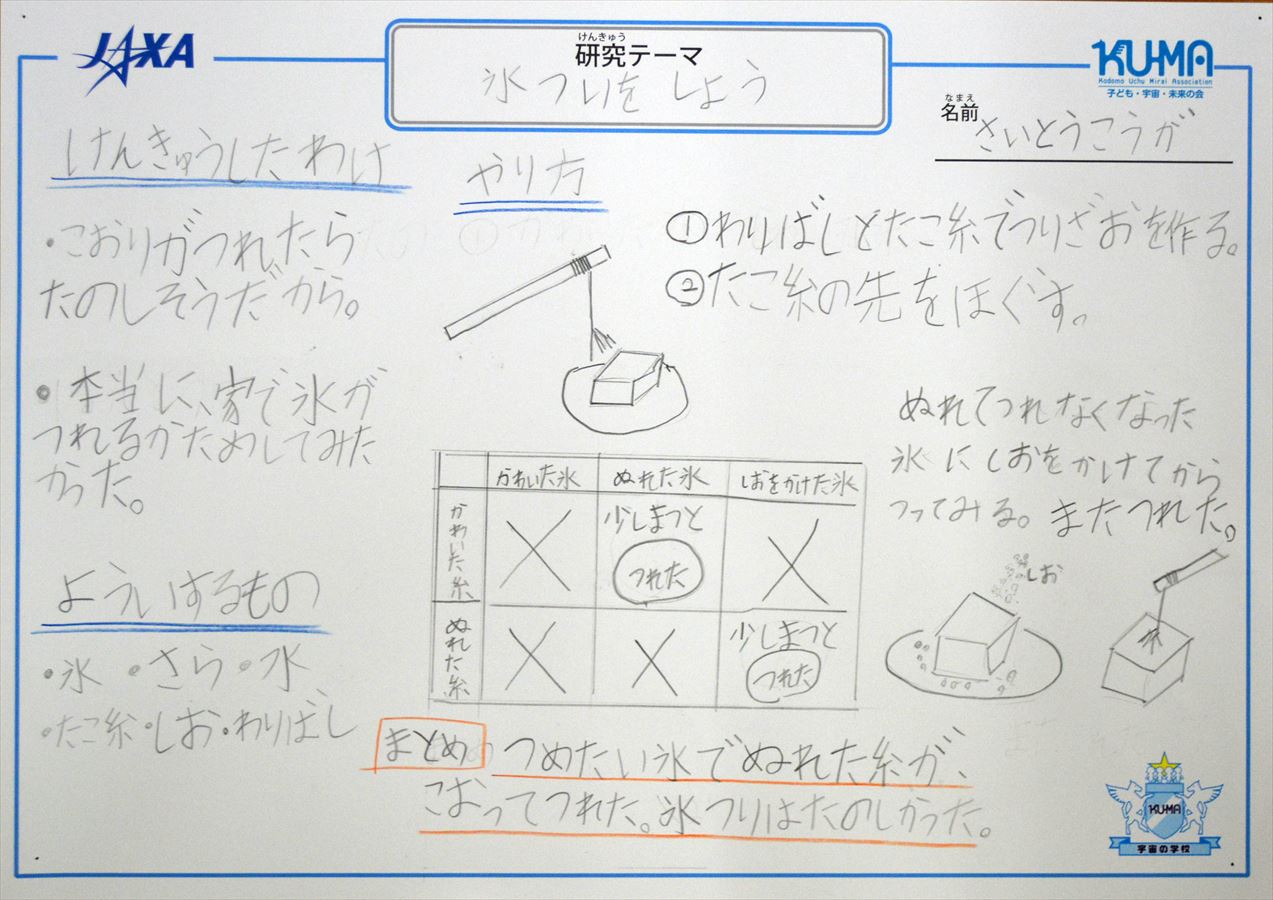 JAXA
けんきゅう
研究テーマ
氷つりをしよう
KU-MA
Kodomo Uchu Mirai Association
子ども・宇宙・未来の会
なまえ
名前
さいとうこうが
けんきゅうしたわけ
・こおりがつれたら
たのしそうだから。
・本当に、家で氷が
つれるかためしてみた
かった。
よういするもの
・氷 ・さら・水
・たこ糸・しお・わりばし
やり方
①わりばしとたこ糸でつりざおを作る。
②たこ糸の先をほぐす。
かわいた氷 ぬれた氷 しおをかけた氷
かわいた糸 少しまつと
つれた
ぬれた糸 少しまつと
つれた
ぬれてつれなくなった
氷にしおをかけてから
つってみる。またつれた。
しお
まとめ つめたい氷でぬれた糸が、
こおってつれた。氷つりはたのしかった。
KU-MA
宇宙の学校